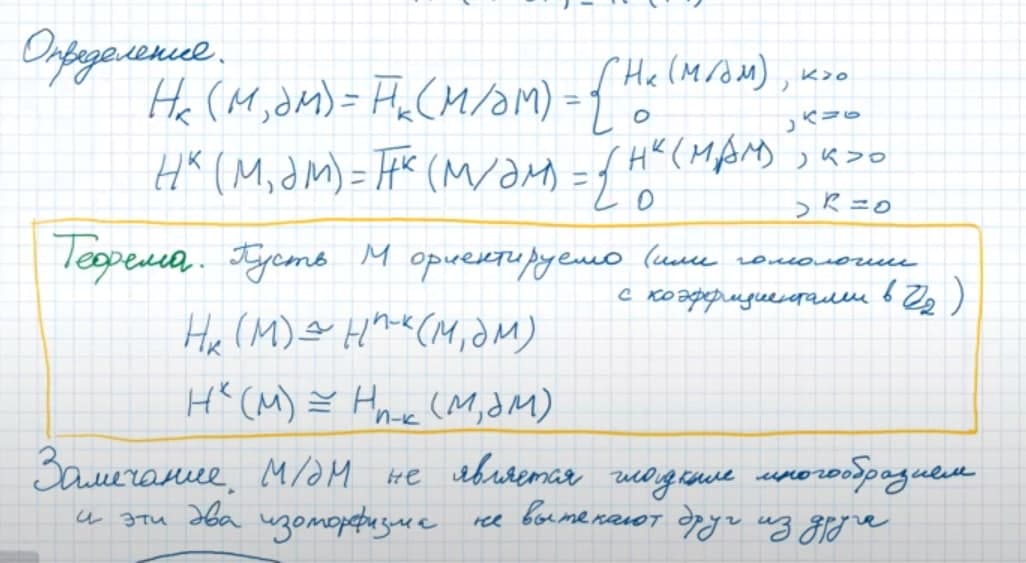 Определение.
H_k (M, ∂M) = H̅_k (M/∂M) = { H_k (M/∂M) , k>0
0 , k=0
H^k (M, ∂M) = H̅^k (M/∂M) = { H^k (M/∂M) , k>0
0 , k=0
Теорема. Пусть M ориентируемо (или гомологии
с коэффициентами в ℤ_2 )
H_k (M) ≅ H^{n-k} (M, ∂M)
H^k (M) ≅ H_{n-k} (M, ∂M)
Замечание. M/∂M не является гладким многообразием
и эти два изоморфизма не вытекают друг из друга